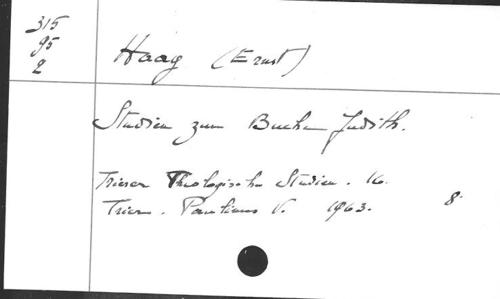 315
95
2
Haag (Ernst)
Studien zum Buche Judith.
Trierer Theologische Studien. 16.
Trier. Paulinus V. 1963. 8°